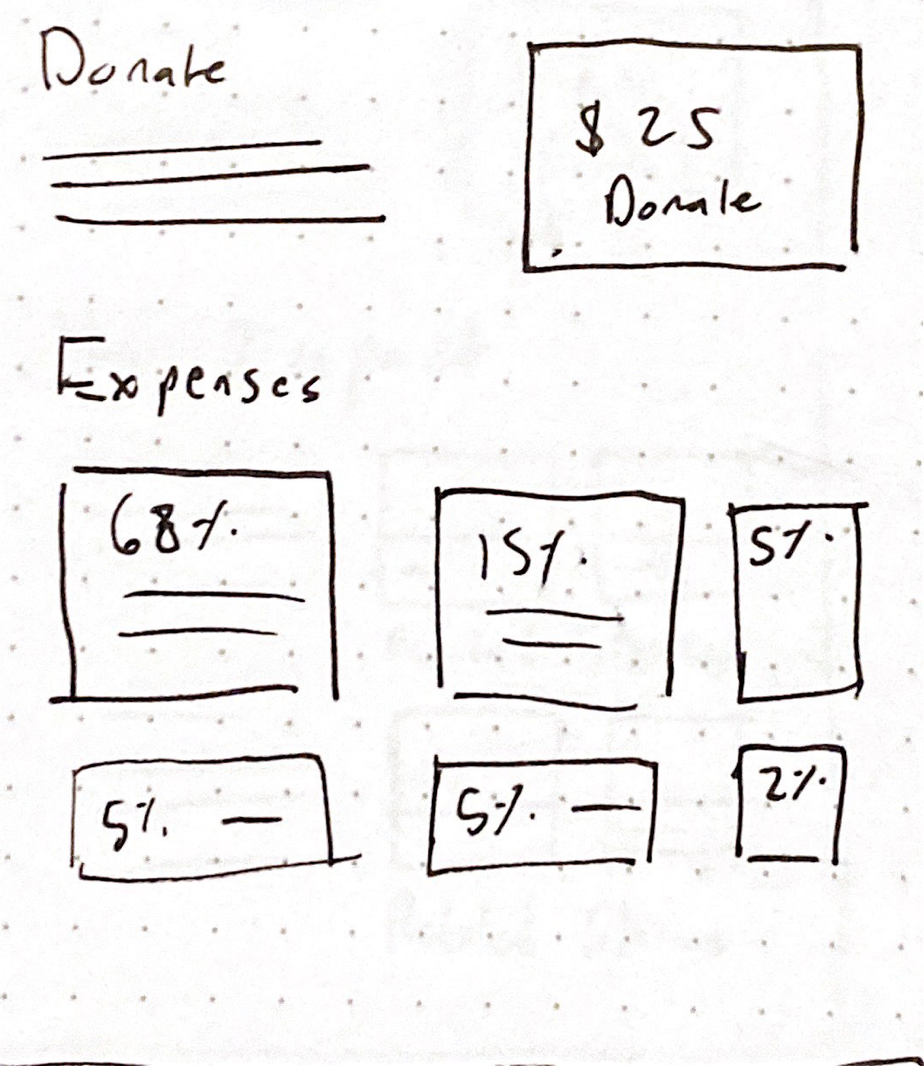 Donate
$25
Donate
Expenses
68%
15%
5%
5%
5%
2%